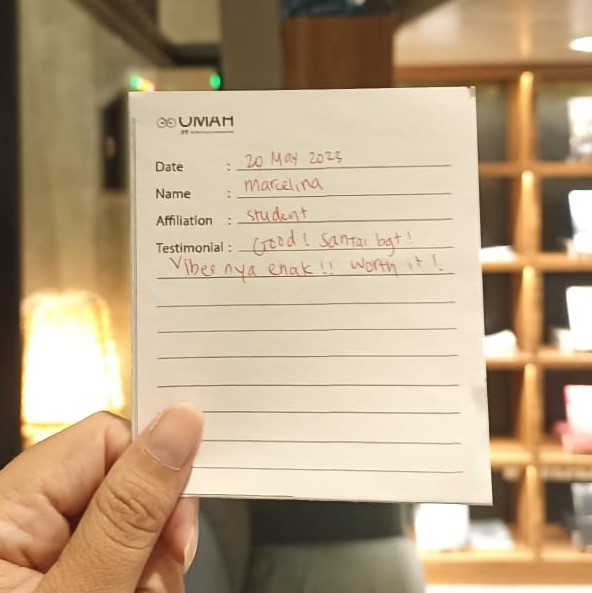 UMAH
Date : 20 May 2023
Name : marcelina
Affiliation : student
Testimonial : Good! Santai bgt!
Vibes nya enak!! worth it!